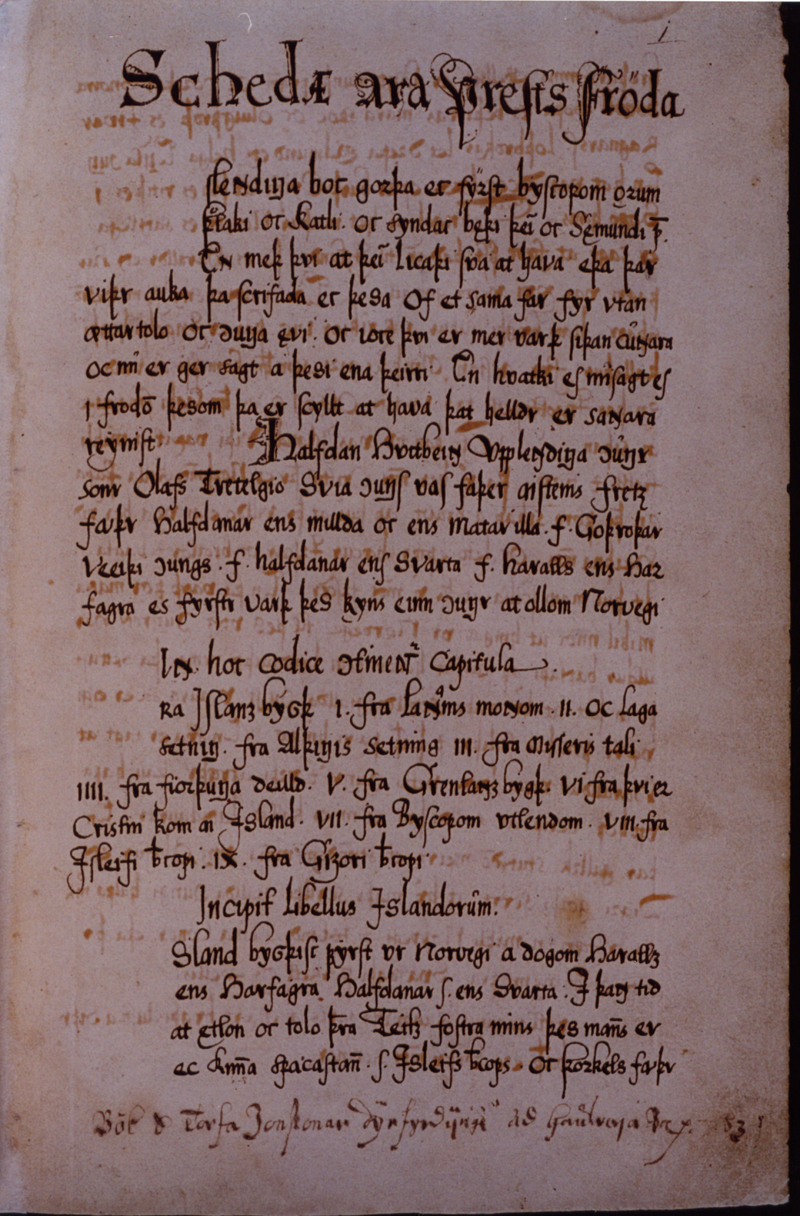 1
Schedæ ara prests fröda
slendiŋa boc gorþa ec fyrst byscopom órum
þlaki oc Katli. oc syndac bęþi þeī oc Sęmundi p̄.
En meþ þvi at þeī licaþi sva at hava eþa þar
viþr auka þa scrifada ec þesa of et sama far fyr utan
ættartolo oc cunŋa ęvi. oc ioc þvi er mer varþ siþan cūnara
oc nu er ger sagt a þesi ena þeiri En hvatki es misagt es
i frodō þesom þa er scyllt at hava þat helldr er sanara
reynist Halfdan Hvitbein Upplendiŋa cunŋr
sonr Olafs Tretelgio Svia cunŋs vas faþer aisteins fretz
faþur Halfdanar ens millda oc ens matarilla. f. Goþroþar
Veiþi cunŋs. f. halfdanar ens Svarta f. haralls ens Har
fagra es fyrstr varþ þes kyns einn cunŋr at ollom Norvegi
In hoc codice continent᷑ Capitula.
ra Islanz bygþ I. fra lanams monom. II. oc laga
setniŋ. fra Alþiŋis setning III. fra Misseris tali
IIII. fra fiorþuŋa deilld. V. fra Grenlanz bygþ. VI fra þvi er
Cristni kom ai Island. VII. fra Byscopom utlendom. VIII. fra
Isleifi b̄copi. IX. fra Gizori b̄copi
Incipit Libellus Islandorum.
Sland bygþisc fyrst ur Norvegi a dogom Haralls
ens Harfagra Halfdanar s. ens Svarta. I þan tid
at ętlon oc tolo þra Teitz fostra mins þes mans er
ec kunna spacastan. s. Isleifs b̄cops. Oc þorkels faþur